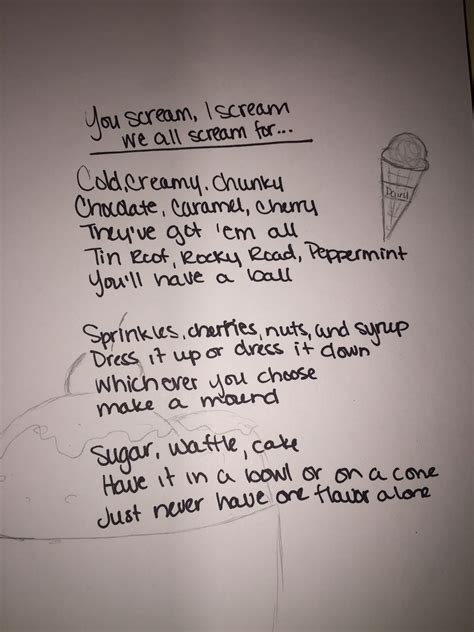 You scream, I scream
We all scream for...
Cold, Creamy, Chunky
Chocolate, Caramel, Cherry
They've got 'em all
Tin Roof, Rocky Road, Peppermint
You'll have a ball
Sprinkles, cherries, nuts, and syrup
Dress it up or dress it down
Whichever you choose
make a mound
Sugar, waffle, cake
Have it in a bowl or on a cone
Just never have one flavor alone
Dairy